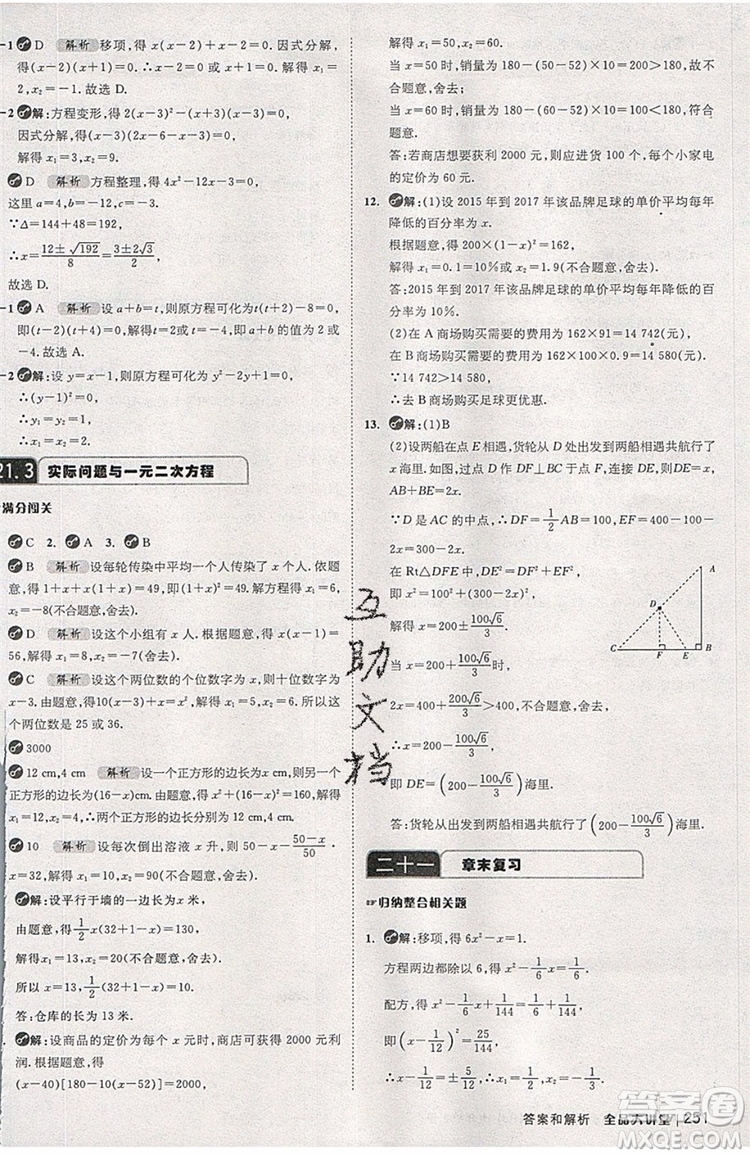 -1 D 解析 移项,得 x(x-2)+(x-2)=0. 因式分解,得(x-2)(x+1)=0. ∴x-2=0 或 x+1=0. ∴x₁=2,x₂=-1. 故选 D.
-2 解:方程变形,得 2(x-3)²-(x-3)(x+3)=0,
因式分解,得(x-3)(2x-6-x-3)=0,
解得 x₁=3,x₂=9.
D 解析 方程整理,得 4x²-12x-3=0,
这里 a=4,b=-12,c=-3,
∵Δ=144+48=192,
∴x=(12±√192)/8=(3±2√3)/2,
故选 D.
-1 A 解析 设 a+b=t,则原方程可化为t(t+2)-8=0,
即(t-2)(t+4)=0,∴t=2 或-4,∴a+b 的值为 2 或
-4. 故选 A.
-2 解:设 y=x-1,则原方程可化为 y²-y=0,
∴y₁=0,y₂=1,
∴x₁=1,x₂=2.
21.3 实际问题与一元二次方程
满分闯关
C 2. A 3. B
B 解析 设每轮传染中平均一个人传染了 x 个人. 依题
意,得 1+x+x(1+x)=49,解方程,得 x₁=6,
x₂=-8(舍去).
D 解析 设这个小组有 x 人. 由题意,得 x(x-1)=
56,解得 x₁=8,x₂=-7(舍去).
C 解析 设这个两位数的个位数字为 x,则十位数字为
(x-3). 由题意,得 10(x-3)+x=x²,解得 x₁=6,x₂=5. 所以这
个两位数是 25 或 36.
3000
12 cm,4 cm 解析 设一个正方形的边长为 x cm,则另一个
正方形的边长为(16-x)cm. 由题意,得 x²+(16-x)²=160,解得 x₁=12,
x₂=4. ∴两个正方形的边长分别为 12 cm,4 cm.
10 解析 设每次倒出溶液 x 升,则 50-x-(50-x)/50·
x=32,解得 x₁=10,x₂=90(舍去).
解:设平行于墙的一边的长为 x 米,
由题意,得 1/2 x(33-x)=130,
解得 x₁=13,x₂=20(舍去).
答:仓库的长为 13 米.
解:设商品的定价为每个 x 元时,商店可获得 2000 元利
润. 根据题意,得
(x-40)[180-10(x-52)]=2000,
解得 x₁=50,x₂=60.
当 x=50 时,销量为 180-(50-52)×10=200. 故不
合题意,舍去;
当 x=60 时,销量为 180-(60-52)×10=100,符合
题意.
答:若商店想要获利 2000 元,应进货 100 个,每个小家电
的定价为 60 元.
12. 解:(1)设 2015 年到 2017 年该品牌足球的单价平均每年
降低的百分率为 x.
根据题意,得 200×(1-x)²=162,
解得 x=0.1=10% 或 x=1.9(舍去).
答:2015 年到 2017 年该品牌足球的单价平均每年降低的百分率
为 10%.
(2)在 A 商场购买需要的费用为 162×91=14 742(元),
在 B 商场购买需要的费用为
∵14 742>14 580,
∴去 B 商场购买足球更优惠.
13. 解:(1)B
(2)设两船在点 E 相遇,货轮从出发到两船相遇共航行了
x 海里. 如图,过点 D 作 DF⊥BC 于点 F,连接 DE,则
AB+BE=2x.
∵D 是 AC 的中点,∴DF=1/2 AB=100,EF=300-2x.
在 Rt△DFE 中,DE²=DF²+EF²,
即 x²=100²+(300-2x)²,
解得 x=200±100√6/3.
当 x=200+100√6/3 时,
2x=400+200√6/3>400(舍去).
∴x=200-100√6/3,
即 DE=(200-100√6/3)海里.
答:货轮从出发到两船相遇共航行了(200-100√6/3)海里.
A
D
C F E B
二十一 章末复习
归纳整合相关题
1. 解:移项,得 6x²-x=1.
方程两边都除以 6,得 x²-1/6 x=1/6.
配方,得 x²-1/6 x+1/144=1/6+1/144,
即(x-1/12)²=25/144,
∴x-1/12=±5/12,∴x₁=1/2,x₂=-1/3.
答案和解析 全品大讲堂 251
互助文档
答案圈